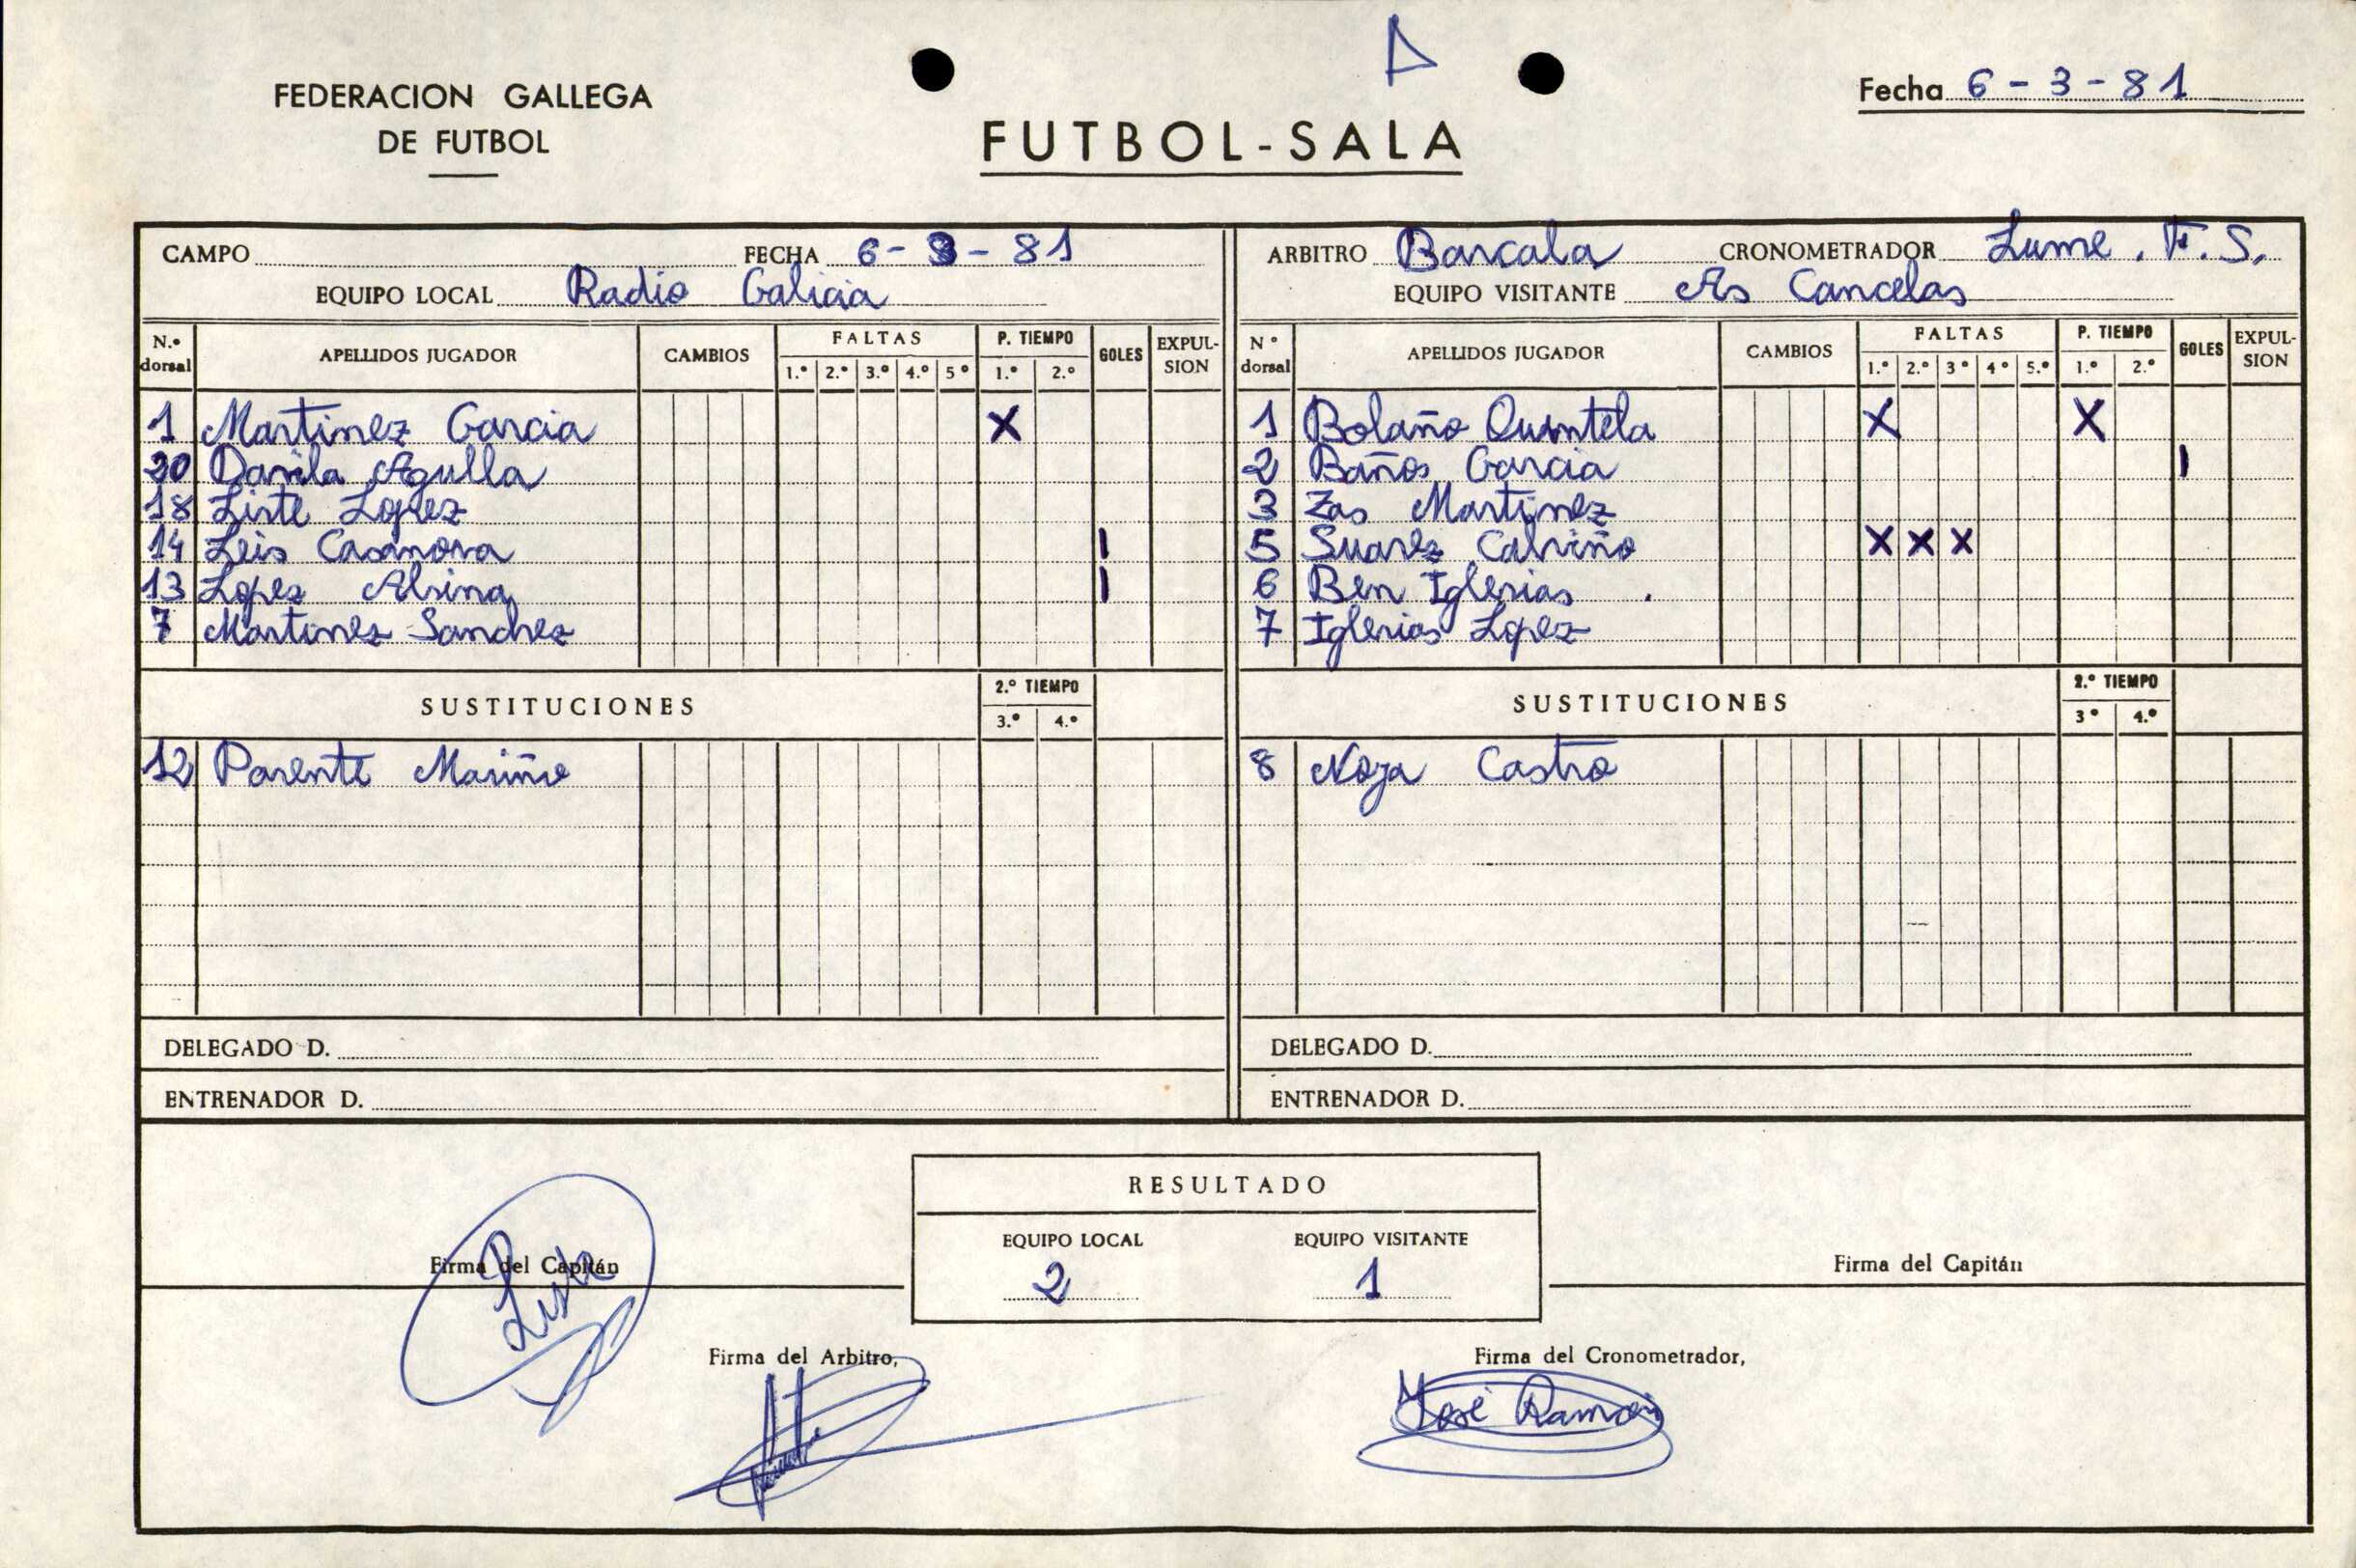 FEDERACION GALLEGA
DE FUTBOL
FUTBOL-SALA
Fecha 6-3-81
CAMPO FECHA 6-3-81
EQUIPO LOCAL Radio Galicia
N.º dorsal APELLIDOS JUGADOR CAMBIOS FALTAS 1.º 2.º 3.º 4.º 5º P. TIEMPO 1.º 2.º GOLES EXPULSION
1 Martinez Garcia X
20 Davila Agulla
18 Liste Lopez
14 Leis Casanova I
13 Lopez Alsina I
7 Martinez Sanchez
SUSTITUCIONES 2.º TIEMPO 3.º 4.º
12 Parente Mariño
DELEGADO D.
ENTRENADOR D.
ARBITRO Barcala CRONOMETRADOR Lume. F.S.
EQUIPO VISITANTE As Cancelas
Nº dorsal APELLIDOS JUGADOR CAMBIOS FALTAS 1.º 2.º 3º 4º 5.º P. TIEMPO 1.º 2.º GOLES EXPULSION
1 Bolaño Quintela X X
2 Baños Garcia I
3 Zas Martinez
5 Suarez Calviño X X X
6 Ben Iglesias .
7 Iglesias Lopez
SUSTITUCIONES 2.º TIEMPO 3º 4.º
8 Noja Castro
DELEGADO D.
ENTRENADOR D.
RESULTADO
EQUIPO LOCAL EQUIPO VISITANTE
2 1
Firma del Capitán
Firma del Capitán
Firma del Arbitro,
Firma del Cronometrador,
José Ramón